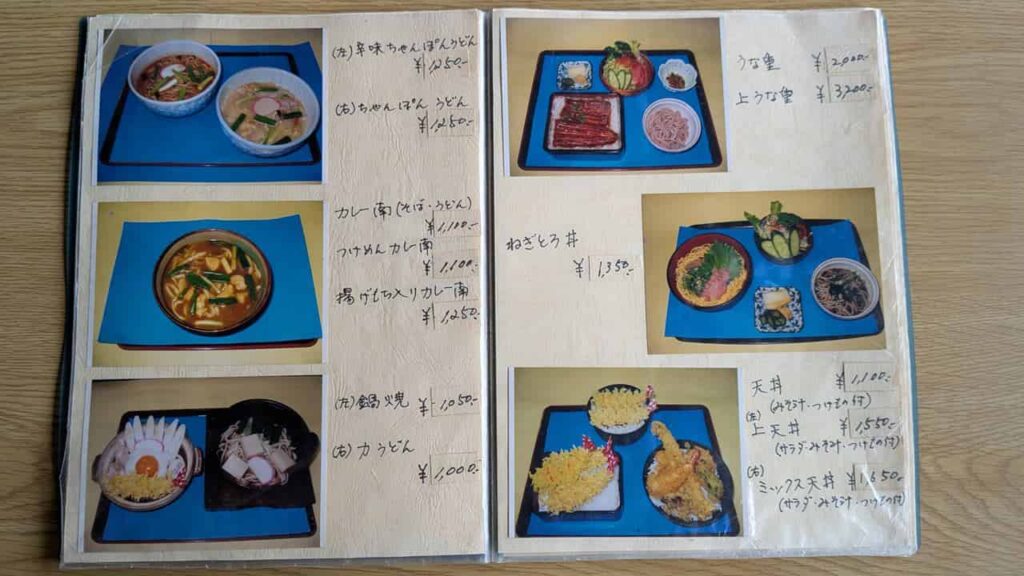 (左)辛味ちゃんぽんうどん
¥1,250.-
(右)ちゃんぽん うどん
¥1,250.-
カレー南(そば・うどん)
¥1,100.-
つけめんカレー南
¥1,100.-
揚げもち入りカレー南
¥1,250.-
(左)鍋焼 ¥1,050.-
(右)力うどん
¥1,000.-
うな重 ¥2,900.-
上うな重 ¥3,200.-
ねぎとろ丼
¥1,350.-
天丼 ¥1,100.-
(みそ汁・つけもの付)
(左)
上天丼 ¥1,550.-
(サラダ・みそ汁・つけもの付)
(右)
ミックス天丼 ¥1,650.-
(サラダ・みそ汁・つけもの付)